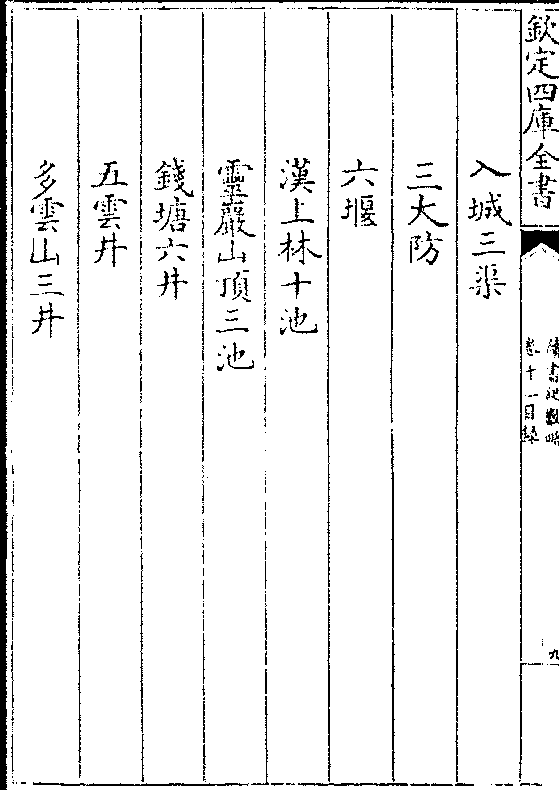 欽定四庫全書
入城三渠
三大防
六堰
漢上林十池
靈巖山頂三池
錢塘六井
五雲井
多雲山三井
卷十一目録
九